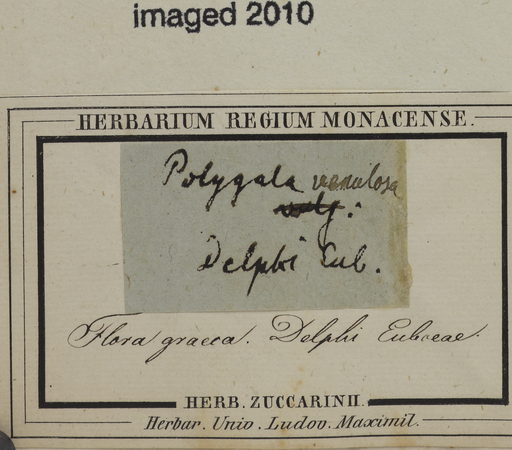 imaged 2010
HERBARIUM REGIUM MONACENSE.
Polygala venulosa
vulg.:
Delphi Eub.
Flora graeca. Delphi Euboeae.
HERB. ZUCCARINII.
Herbar. Univ. Ludov. Maximil.